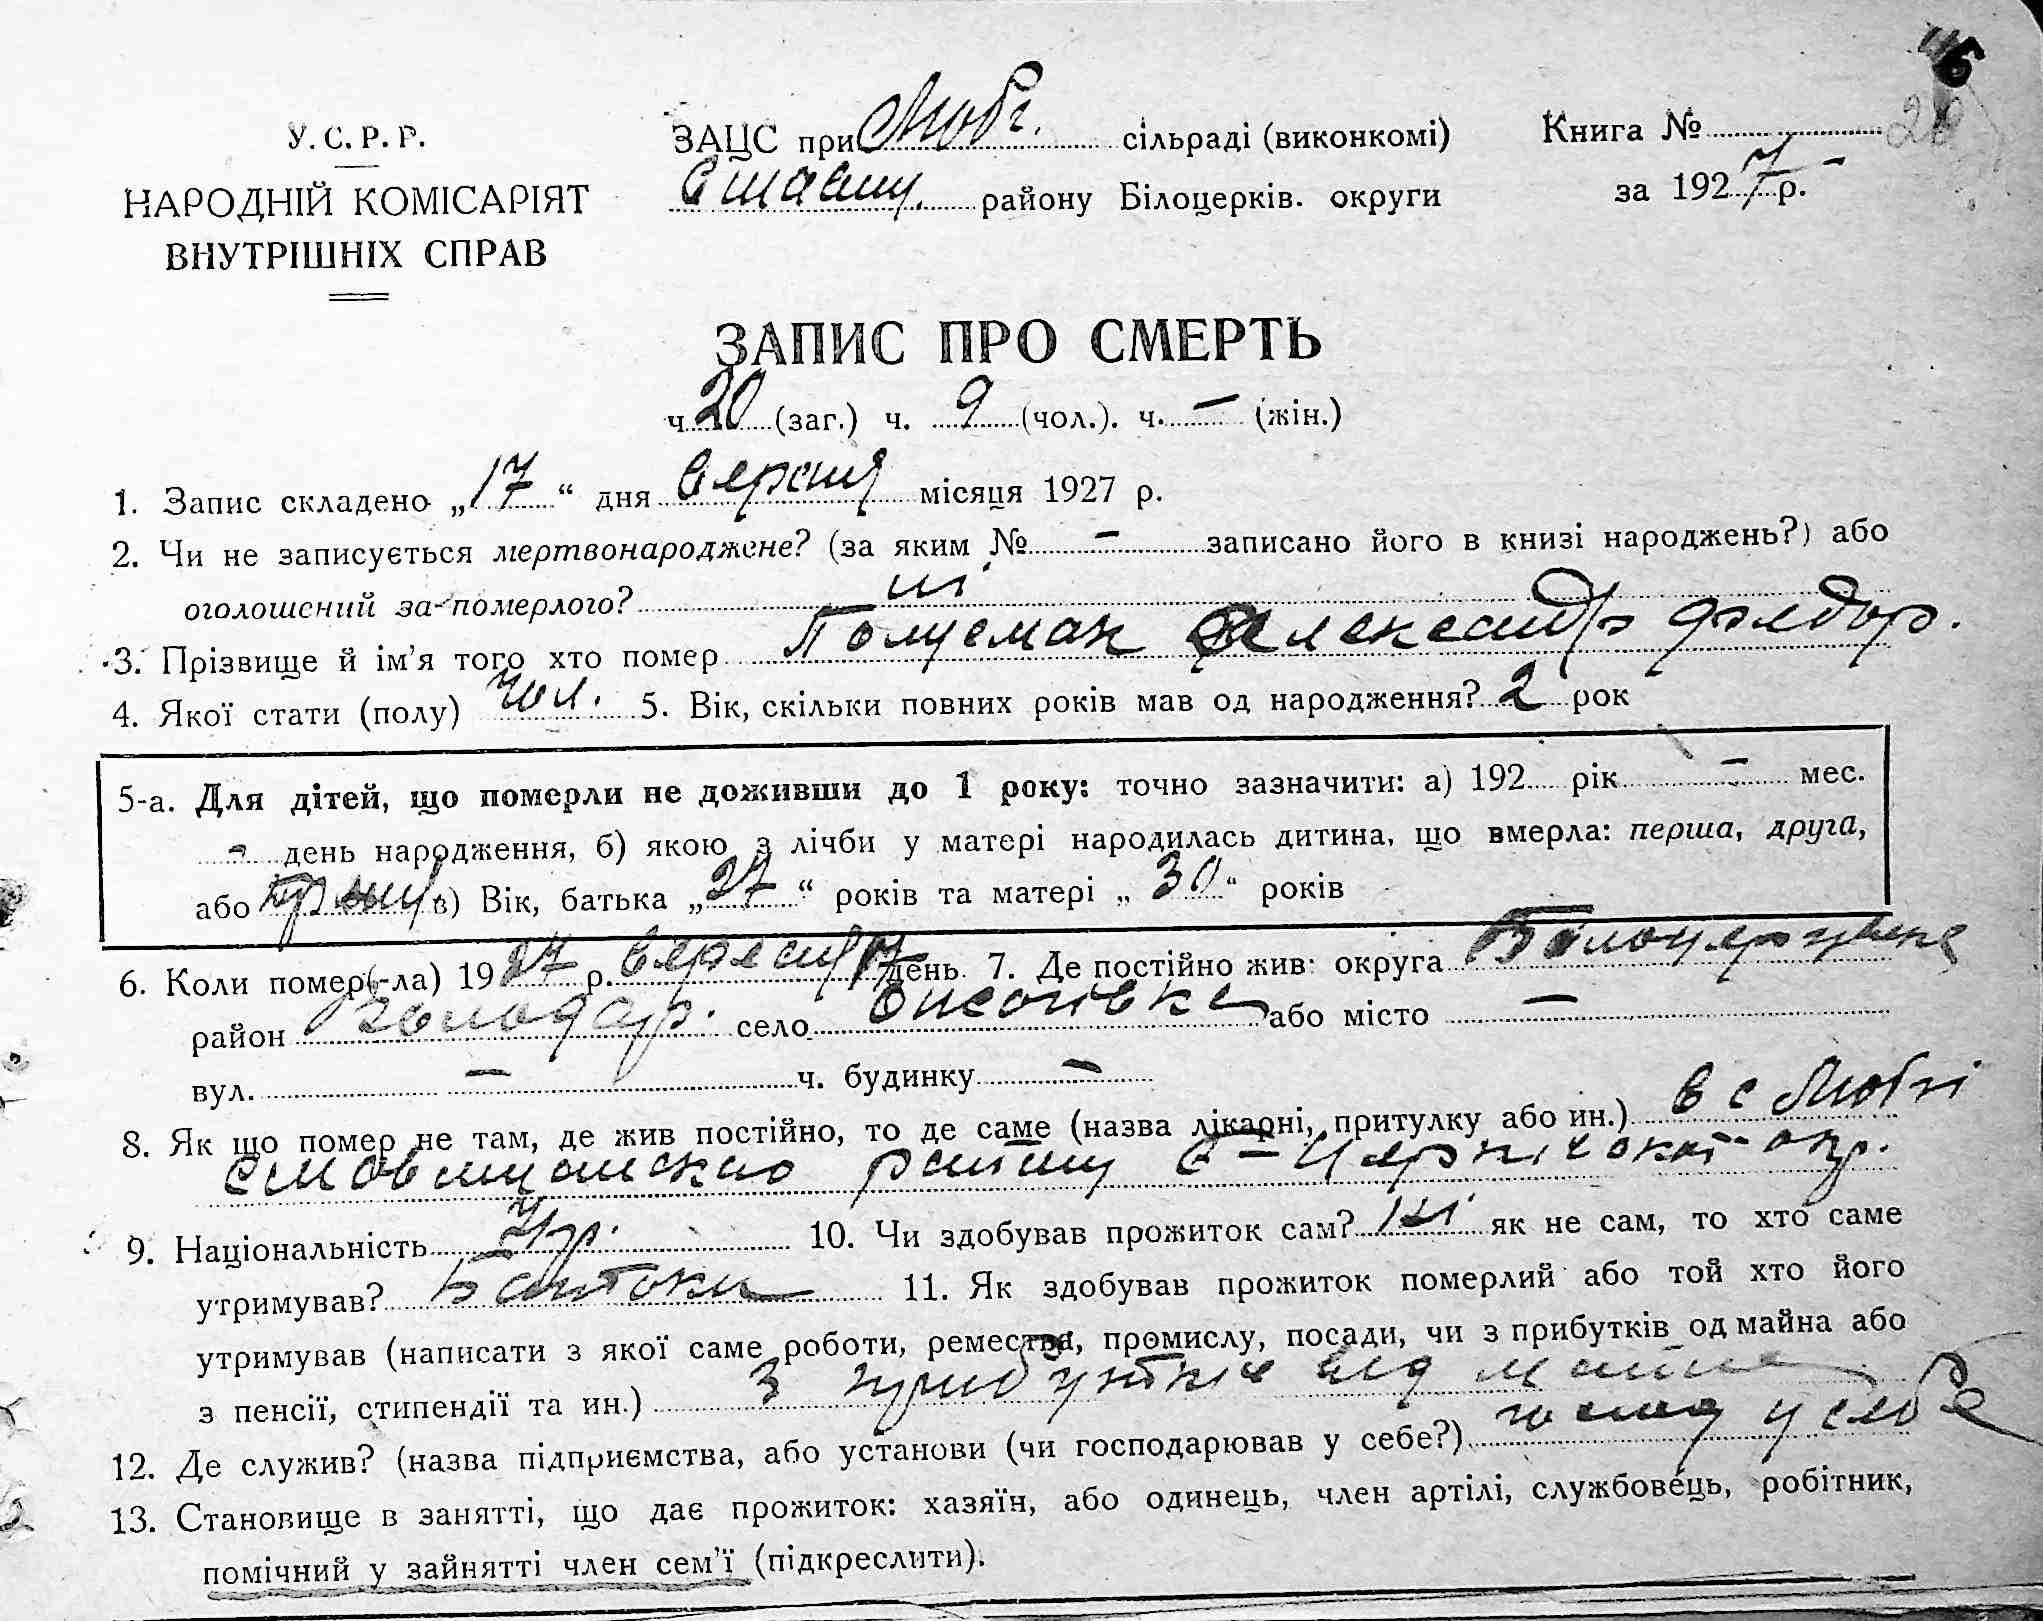 У. С. Р. Р.
НАРОДНІЙ КОМІСАРІЯТ
ВНУТРІШНІХ СПРАВ
ЗАЦС при Любч. сільраді (виконкомі)
Ставищ. району Білоцерків. округи
Книга №
за 1927 р. –
ЗАПИС ПРО СМЕРТЬ
ч. 20 (заг.) ч. 9 (чол.). ч. – (жін.)
1. Запис складено „17“ дня вересня місяця 1927 р.
2. Чи не записується мертвонароджене? (за яким № – записано його в книзі народжень?) або
оголошений за померлого? ні
3. Прізвище й ім’я того хто помер Полусмак Александр Федор.
4. Якої стати (полу) чол. 5. Вік, скільки повних років мав од народження? 2 рок
5-а. Для дітей, що померли не доживши до 1 року: точно зазначити: а) 192 рік – мес.
– день народження, б) якою з лічби у матері народилась дитина, що вмерла: перша, друга,
або в) Вік, батька „27“ років та матері „30“ років
6. Коли помер(-ла) 1927 р. вересня 17 день. 7. Де постійно жив: округа Білоцерківська
район Володар. село або місто –
вул. – ч. будинку –
8. Як що помер не там, де жив постійно, то де саме (назва лікарні, притулку або ин.) в с
району Б-Церківської окр.
9. Національність Укр. 10. Чи здобував прожиток сам? ні як не сам, то хто саме
утримував? Батьки 11. Як здобував прожиток померлий або той хто його
утримував (написати з якої саме роботи, ремества, промислу, посади, чи з прибутків од майна або
з пенсії, стипендії та ин.) з прибутків від майна
12. Де служив? (назва підприємства, або установи (чи господарював у себе?) у себе
13. Становище в занятті, що дає прожиток: хазяїн, або одинець, член артілі, службовець, робітник,
помічний у зайнятті член сем’ї (підкреслити).